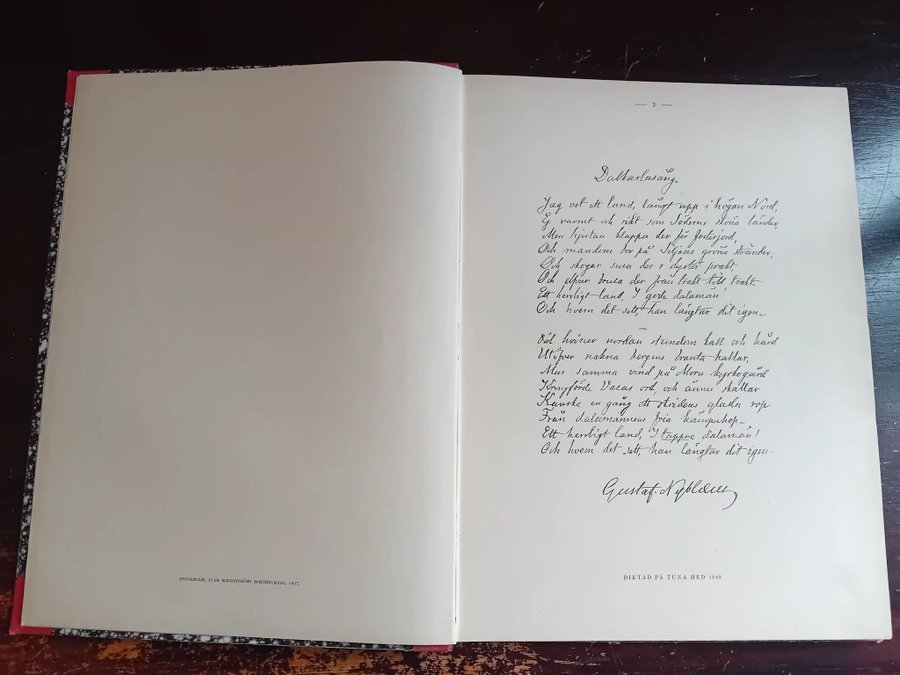 STOCKHOLM, IVAR HÆGGSTRÖMS BOKTRYCKERI, 1897.
— 3 —
Dalkarlasång.
Jag vet ett land, långt upp i högan Nord,
Ej varmt och rikt som Söderns sköna länder,
Men hjertan klappa der för fosterjord,
Och mandom bor på Siljans gröna stränder.
Och skogar susa der i dyster prakt,
Och elfvar brusa der från trakt till trakt.
Ett herrligt land, I gode dalamän!
Och hvem det sett, han längtar dit igen.
Väl hviner nordan stundom kall och hård
Utöfver nakna bergens branta hallar,
Men samma vind på Mora kyrkogård
Kringförde Vasas ord och ännu skallar
Kanske en gång ett stridens glada rop
Från dalamännens fria kämpahop.
Ett herrligt land, I tappre dalamän!
Och hvem det sett, han längtar dit igen.
Gustaf Nyblæus
DIKTAD PÅ TUNA HED